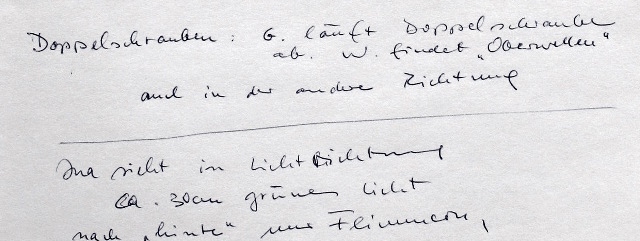 Doppelschrauben: G. läuft Doppelschraube
ab. W. findet „Oberwellen“
auch in der andere Richtung
Ina sieht in Lichtrichtung
ca. 30cm grünes Licht
nach „hinten“ nur Flimmern,